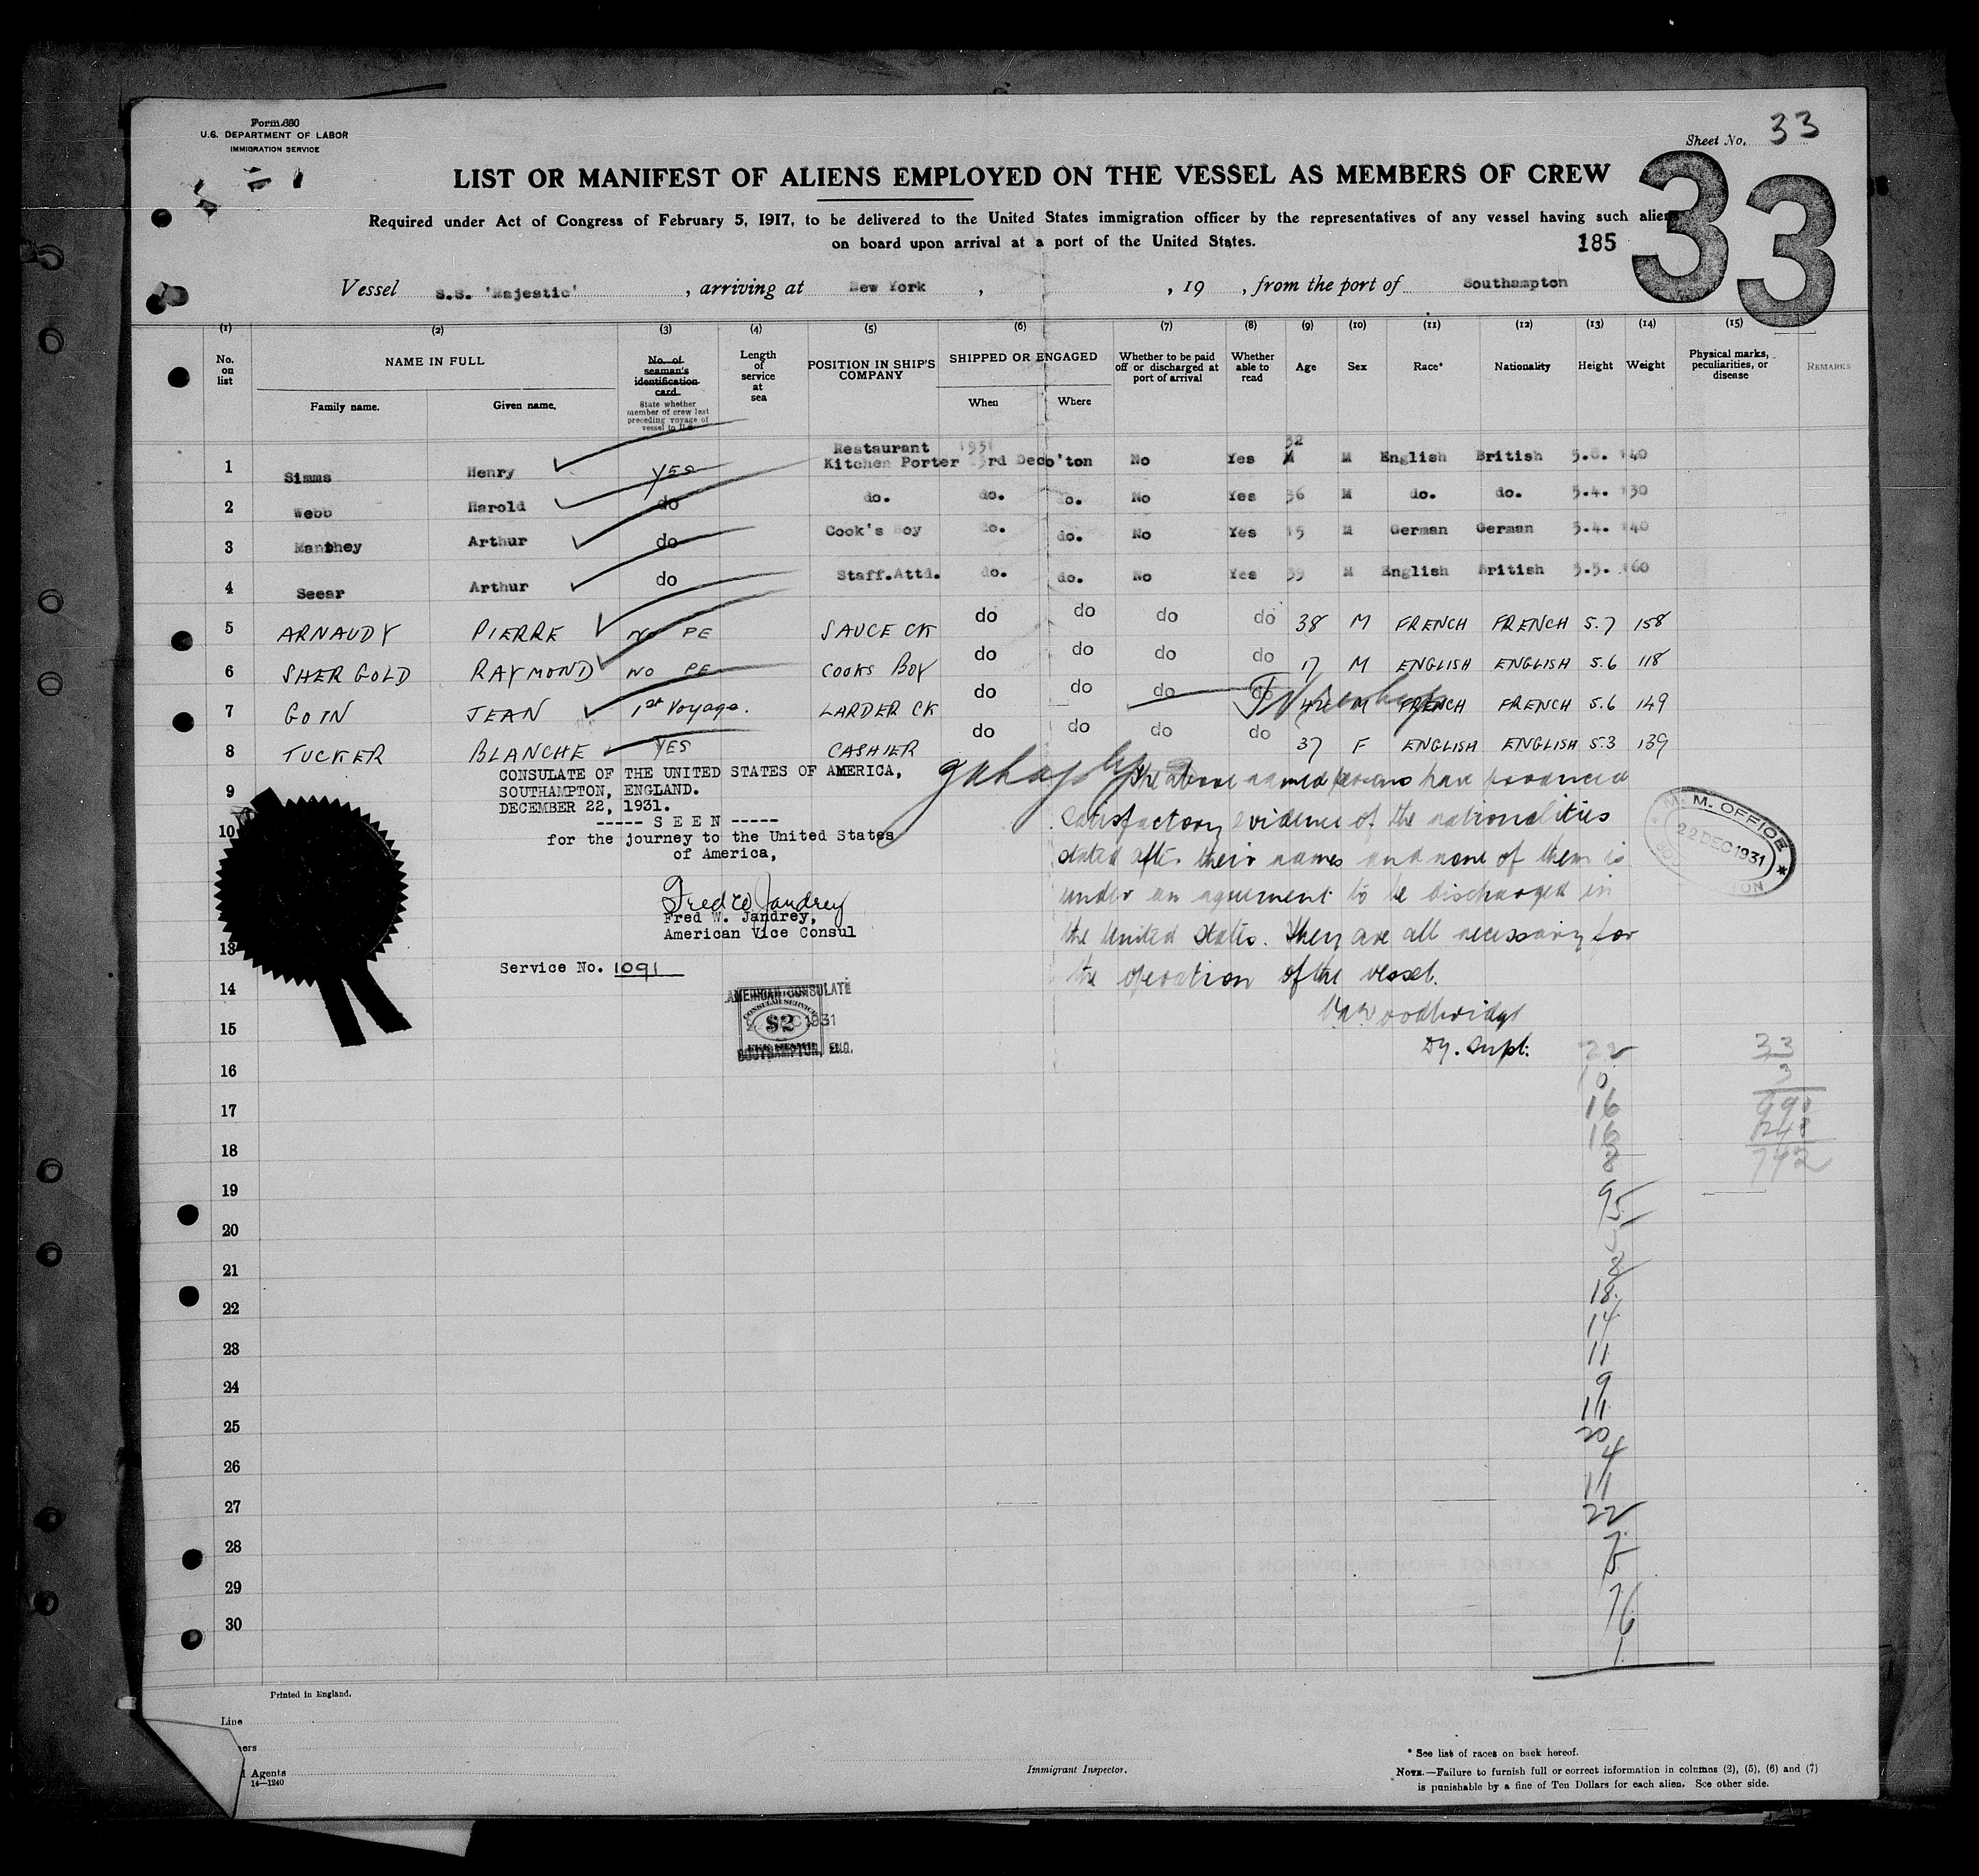 Form 680
U.S. DEPARTMENT OF LABOR
IMMIGRATION SERVICE
Sheet No. 33
LIST OR MANIFEST OF ALIENS EMPLOYED ON THE VESSEL AS MEMBERS OF CREW
33
Required under Act of Congress of February 5, 1917, to be delivered to the United States immigration officer by the representatives of any vessel having such aliens
on board upon arrival at a port of the United States.
185
Vessel S.S. 'Majestic' , arriving at New York , , 19 , from the port of Southampton
(1) (2) (3) (4) (5) (6) (7) (8) (9) (10) (11) (12) (13) (14) (15)
No. on list
NAME IN FULL
Family name. Given name.
No. of seaman's identification card
State whether member of crew last preceding voyage of vessel to U.S.
Length of service at sea
POSITION IN SHIP'S COMPANY
SHIPPED OR ENGAGED
When Where
Whether to be paid off or discharged at port of arrival
Whether able to read
Age Sex Race* Nationality Height Weight
Physical marks, peculiarities, or disease
REMARKS
1 Simms Henry YES Restaurant Kitchen Porter 1931 3rd Dec So'ton No Yes 32 M English British 5.8. 140
2 Webb Harold do do. do. do. No Yes 36 M do. do. 5.4. 130
3 Manthey Arthur do Cook's Boy do. do. No Yes 15 M German German 5.4. 140
4 Seear Arthur do Staff.Attd. do. do. No Yes 39 M English British 5.5. 160
5 ARNAUDY PIERRE NO PE SAUCE CK do do do do 38 M FRENCH FRENCH 5.7 158
6 SHERGOLD RAYMOND NO PE COOKS BOY do do do do 17 M ENGLISH ENGLISH 5.6 118
7 GOIN JEAN 1st Voyage. LARDER CK do do do do 42 M FRENCH FRENCH 5.6 149
8 TUCKER BLANCHE YES CASHIER do do do do 37 F ENGLISH ENGLISH 5.3 139
CONSULATE OF THE UNITED STATES OF AMERICA,
SOUTHAMPTON, ENGLAND.
DECEMBER 22, 1931.
----- S E E N -----
for the journey to the United States
of America,
Fred W Jandrey
Fred W. Jandrey,
American Vice Consul
Service No. 1091
AMERICAN CONSULATE
CONSULAR SERVICE
$2
1931
FEE STAMP
SOUTHAMPTON, ENG.
The above named persons have produced
satisfactory evidence of the nationalities
stated after their names and none of them is
under an agreement to be discharged in
the United States. They are all necessary for
the operation of the vessel.
Woodbridge
Dy. Supt:
M. M. OFFICE
22 DEC 1931
9
10
13
14
15
16
17
18
19
20
21
22
23
24
25
26
27
28
29
30
22
10
16
16
8
95
8
18
14
11
9
11
20
4
11
22
7
5
76
1
33
3
990
248
742
Printed in England.
Line
Agents
14—1240
Immigrant Inspector.
* See list of races on back hereof.
NOTE.—Failure to furnish full or correct information in columns (2), (5), (6) and (7)
is punishable by a fine of Ten Dollars for each alien. See other side.